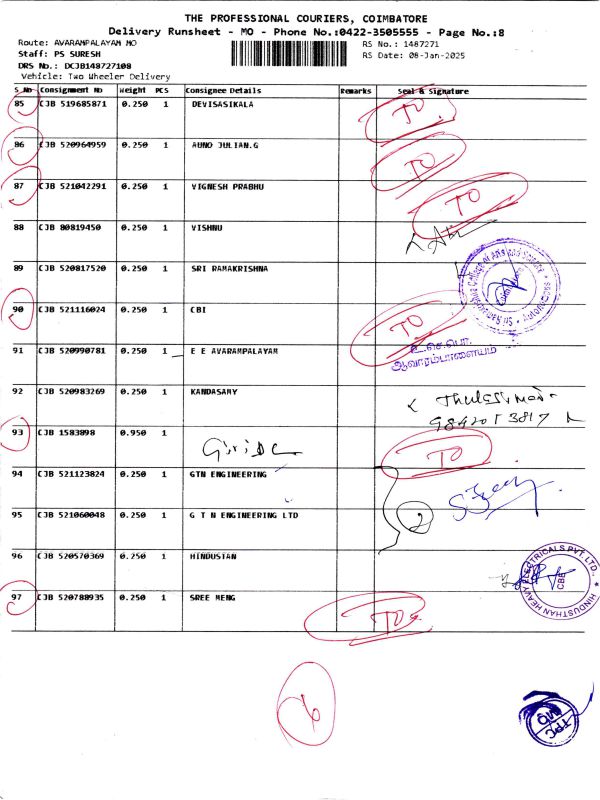 THE PROFESSIONAL COURIERS, COIMBATORE
Delivery Runsheet - MO - Phone No.:0422-3505555 - Page No.:8
Route: AVARAMPALAYAM MO RS No.: 1487271
Staff: PS SURESH RS Date: 08-Jan-2025
DRS No.: DCJB148727108
Vehicle: Two Wheeler Delivery
S.No Consignment No Weight PCS Consignee Details Remarks Seal & Signature
85 CJB 519685871 0.250 1 DEVISASIKALA TO
86 CJB 520964959 0.250 1 AUNO JULIAN.G TO
87 CJB 521042291 0.250 1 VIGNESH PRABHU TO
88 CJB 80819450 0.250 1 VISHNU
89 CJB 520817520 0.250 1 SRI RAMAKRISHNA
90 CJB 521116024 0.250 1 CBI TO
91 CJB 520990781 0.250 1 E E AVARAMPALAYAM
ஆவாரம்பாளையம்
92 CJB 520983269 0.250 1 KANDASAMY
98420 53817
93 CJB 1583898 0.950 1 TO
94 CJB 521123824 0.250 1 GTN ENGINEERING
95 CJB 521060048 0.250 1 G T N ENGINEERING LTD 2
96 CJB 520570369 0.250 1 HINDUSTAN
HINDUSTHAN HEAVY ELECTRICALS PVT. LTD.,
CBE
97 CJB 520788935 0.250 1 SREE MENG TO
TPC
MO